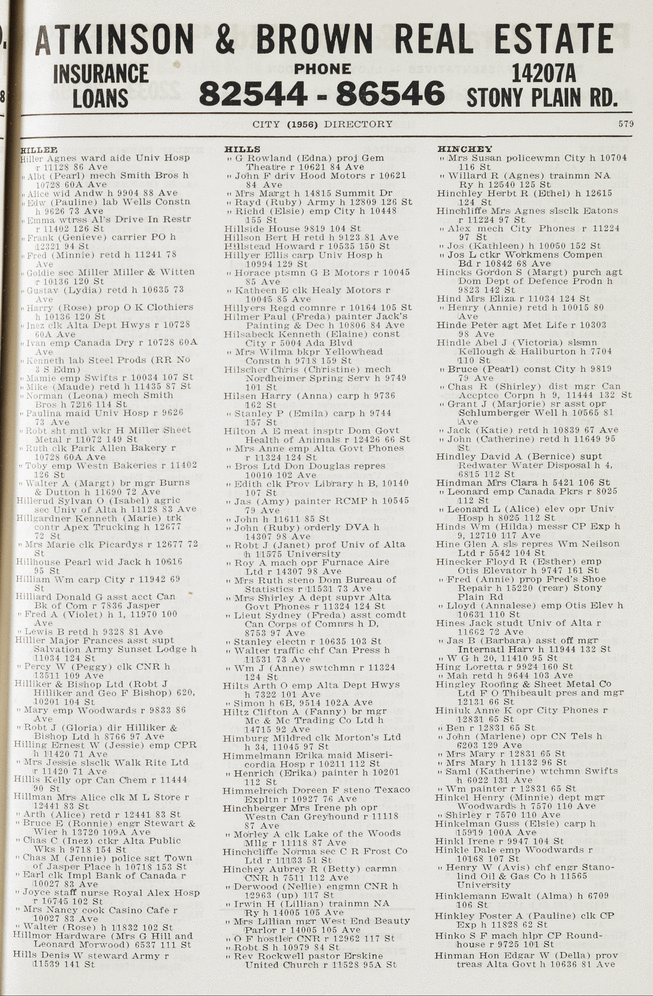 ATKINSON & BROWN REAL ESTATE
INSURANCE
LOANS
PHONE
82544 - 86546
14207A
STONY PLAIN RD.
CITY (1956) DIRECTORY
579
HILLER
Hiller Agnes ward aide Univ Hosp
r 11128 86 Ave
" Albt (Pearl) mech Smith Bros h
10728 60A Ave
" Alice wid Andw h 9904 88 Ave
" Edw (Pauline) lab Wells Constn
h 9626 73 Ave
" Emma wtrss Al's Drive In Restr
r 11402 126 St
" Frank (Genieve) carrier PO h
12321 94 St
" Fred (Minnie) retd h 11241 78
Ave
" Goldie sec Miller Miller & Witten
r 10136 120 St
" Gustav (Lydia) retd h 10635 73
Ave
" Harry (Rose) prop O K Clothiers
h 10136 120 St
" Inez clk Alta Dept Hwys r 10728
60A Ave
" Ivan emp Canada Dry r 10728 60A
Ave
" Kenneth lab Steel Prods (RR No
3 S Edm)
" Mamie emp Swifts r 10034 107 St
" Mike (Maude) retd h 11435 87 St
" Norman (Leona) mech Smith
Bros h 7216 114 St
" Paulina maid Univ Hosp r 9626
73 Ave
" Robt sht mtl wkr H Miller Sheet
Metal r 11072 149 St
" Ruth clk Park Allen Bakery r
10728 60A Ave
" Toby emp Westn Bakeries r 11402
126 St
" Walter A (Margt) br mgr Burns
& Dutton h 11690 72 Ave
Hillerud Sylvan O (Isabel) agric
sec Univ of Alta h 11128 83 Ave
Hillgardner Kenneth (Marie) trk
contr Apex Trucking h 12677
72 St
" Mrs Marie clk Picardys r 12677 72
St
Hillhouse Pearl wid Jack h 10616
95 St
Hilliam Wm carp City r 11942 69
St
Hilliard Donald G asst acct Can
Bk of Com r 7836 Jasper
" Fred A (Violet) h 1, 11970 100
Ave
" Lewis B retd h 9328 81 Ave
Hillier Major Frances asst supt
Salvation Army Sunset Lodge h
11034 124 St
" Percy W (Peggy) clk CNR h
13511 109 Ave
Hilliker & Bishop Ltd (Robt J
Hilliker and Geo F Bishop) 620,
10201 104 St
" Mary emp Woodwards r 9833 86
Ave
" Robt J (Gloria) dir Hilliker &
Bishop Ltd h 8766 97 Ave
Hilling Ernest W (Jessie) emp CPR
h 11420 71 Ave
" Mrs Jessie slsclk Walk Rite Ltd
r 11420 71 Ave
Hillis Kelly opr Can Chem r 11444
90 St
Hillman Mrs Alice clk M L Store r
12441 83 St
" Arth (Alice) retd r 12441 83 St
" Bruce E (Ronnie) engr Stewart &
Wier h 13720 109A Ave
" Chas C (Inez) ctkr Alta Public
Wks h 9718 154 St
" Chas M (Jennie) police sgt Town
of Jasper Place h 10718 153 St
" Earl clk Impl Bank of Canada r
10027 83 Ave
" Joyce staff nurse Royal Alex Hosp
r 10745 102 St
" Mrs Nancy cook Casino Cafe r
10027 83 Ave
" Walter (Rose) h 11832 102 St
Hillmor Hardware (Mrs G Hill and
Leonard Morwood) 6537 111 St
Hills Denis W steward Army r
11539 141 St
HILLS
" G Rowland (Edna) proj Gem
Theatre r 10621 84 Ave
" John F driv Hood Motors r 10621
84 Ave
" Mrs Margt h 14815 Summit Dr
" Rayd (Ruby) Army h 12809 126 St
" Richd (Elsie) emp City h 10448
155 St
Hillside House 9819 104 St
Hillson Bert H retd h 9123 81 Ave
Hillstead Howard r 10535 150 St
Hillyer Ellis carp Univ Hosp h
10994 129 St
" Horace ptsmn G B Motors r 10045
85 Ave
" Katheen E clk Healy Motors r
10045 85 Ave
Hillyers Regd comnre r 10164 105 St
Hilmer Paul (Freda) painter Jack's
Painting & Dec h 10806 84 Ave
Hilsabeck Kenneth (Elaine) const
City r 5004 Ada Blvd
" Mrs Wilma bkpr Yellowhead
Constn h 9718 159 St
Hilscher Chris (Christine) mech
Nordheimer Spring Serv h 9749
101 St
Hilsen Harry (Anna) carp h 9736
162 St
" Stanley P (Emila) carp h 9744
157 St
Hilton A E meat insptr Dom Govt
Health of Animals r 12426 66 St
" Mrs Anne emp Alta Govt Phones
r 11324 124 St
" Bros Ltd Don Douglas repres
10010 102 Ave
" Edith clk Prov Library h B, 10140
107 St
" Jas (Amy) painter RCMP h 10545
79 Ave
" John h 11611 85 St
" John (Ruby) orderly DVA h
14307 98 Ave
" Robt J (Janet) prof Univ of Alta
h 11575 University
" Roy A mach opr Furnace Aire
Ltd r 14307 98 Ave
" Mrs Ruth steno Dom Bureau of
Statistics r 11531 73 Ave
" Mrs Shirley A dept supvr Alta
Govt Phones r 11324 124 St
" Lieut Sydney (Freda) asst comdt
Can Corps of Comnrs h D,
8753 97 Ave
" Stanley electn r 10635 103 St
" Walter traffic chf Can Press h
11531 73 Ave
" Wm J (Anne) swtchmn r 11324
124 St
Hilts Arth O emp Alta Dept Hwys
h 7322 101 Ave
" Simon h 6B, 9514 102A Ave
Hiltz Clifton A (Fanny) br mgr
Mc & Mc Trading Co Ltd h
14715 92 Ave
Himburg Mildred clk Morton's Ltd
h 34, 11045 97 St
Himmelmann Erika maid Miseri-
cordia Hosp r 10211 112 St
" Henrich (Erika) painter h 10201
112 St
Himmelreich Doreen F steno Texaco
Expltn r 10927 76 Ave
Hinchberger Mrs Irene ph opr
Westn Can Greyhound r 11118
87 Ave
" Morley A clk Lake of the Woods
Mllg r 11118 87 Ave
Hinchcliffe Norma sec C R Frost Co
Ltd r 11133 51 St
Hinchey Aubrey R (Betty) carmn
CNR h 7511 112 Ave
" Derwood (Nellie) engmn CNR h
12963 (up) 117 St
" Irwin H (Lillian) trainmn NA
Ry h 14005 105 Ave
" Mrs Lillian mgr West End Beauty
Parlor r 14005 105 Ave
" O F hostler CNR r 12962 117 St
" Robt S h 10979 84 St
" Rev Rockwell pastor Erskine
United Church r 11528 95A St
HINCHEY
" Mrs Susan policewmn City h 10704
116 St
" Willard R (Agnes) trainmn NA
Ry h 12540 125 St
Hinchley Herbt R (Ethel) h 12615
124 St
Hinchliffe Mrs Agnes slsclk Eatons
r 11224 97 St
" Alex mech City Phones r 11224
97 St
" Jos (Kathleen) h 10050 152 St
" Jos L ctkr Workmens Compen
Bd r 10842 68 Ave
Hincks Gordon S (Margt) purch agt
Dom Dept of Defence Prodn h
9823 142 St
Hind Mrs Eliza r 11034 124 St
" Henry (Annie) retd h 10015 80
Ave
Hinde Peter agt Met Life r 10303
98 Ave
Hindle Abel J (Victoria) slsmn
Kellough & Haliburton h 7704
110 St
" Bruce (Pearl) const City h 9819
79 Ave
" Chas R (Shirley) dist mgr Can
Accptce Corpn h 9, 11444 132 St
" Grant J (Marjorie) sr asst opr
Schlumberger Well h 10565 81
Ave
" Jack (Katie) retd h 10839 67 Ave
" John (Catherine) retd h 11649 95
St
Hindley David A (Bernice) supt
Redwater Water Disposal h 4,
6815 112 St
Hindman Mrs Clara h 5421 106 St
" Leonard emp Canada Pkrs r 8025
112 St
" Leonard L (Alice) elev opr Univ
Hosp h 8025 112 St
Hinds Wm (Hilda) messr CP Exp h
9, 12710 117 Ave
Hine Glen A sls repres Wm Neilson
Ltd r 5542 104 St
Hinecker Floyd R (Esther) emp
Otis Elevator h 9747 161 St
" Fred (Annie) prop Fred's Shoe
Repair h 15220 (rear) Stony
Plain Rd
" Lloyd (Annalese) emp Otis Elev h
10631 110 St
Hines Jack studt Univ of Alta r
11662 72 Ave
" Jas B (Barbara) asst off mgr
Internatl Harv h 11944 132 St
" W G h 20, 11410 95 St
Hing Loretta r 9924 160 St
" Mah retd h 9644 103 Ave
Hingley Roofing & Sheet Metal Co
Ltd F O Thibeault pres and mgr
12131 66 St
Hiniuk Anne K opr City Phones r
12831 65 St
" Ben r 12831 65 St
" John (Marlene) opr CN Tels h
6203 129 Ave
" Mrs Mary r 12831 65 St
" Mrs Mary h 11132 96 St
" Saml (Katherine) wtchmn Swifts
h 6022 131 Ave
" Wm painter r 12831 65 St
Hinkel Henry (Minnie) dept mgr
Woodwards h 7570 110 Ave
" Shirley r 7570 110 Ave
Hinkelman Guss (Elsie) carp h
15919 100A Ave
Hinkl Irene r 9947 104 St
Hinkle Dale emp Woodwards r
10168 107 St
" Henry W (Avis) chf engr Stano-
lind Oil & Gas Co h 11565
University
Hinklemann Ewalt (Alma) h 6709
106 St
Hinkley Foster A (Pauline) clk CP
Exp h 11828 62 St
Hinko S F mach hlpr CP Round-
house r 9725 101 St
Hinman Hon Edgar W (Della) prov
treas Alta Govt h 10636 81 Ave